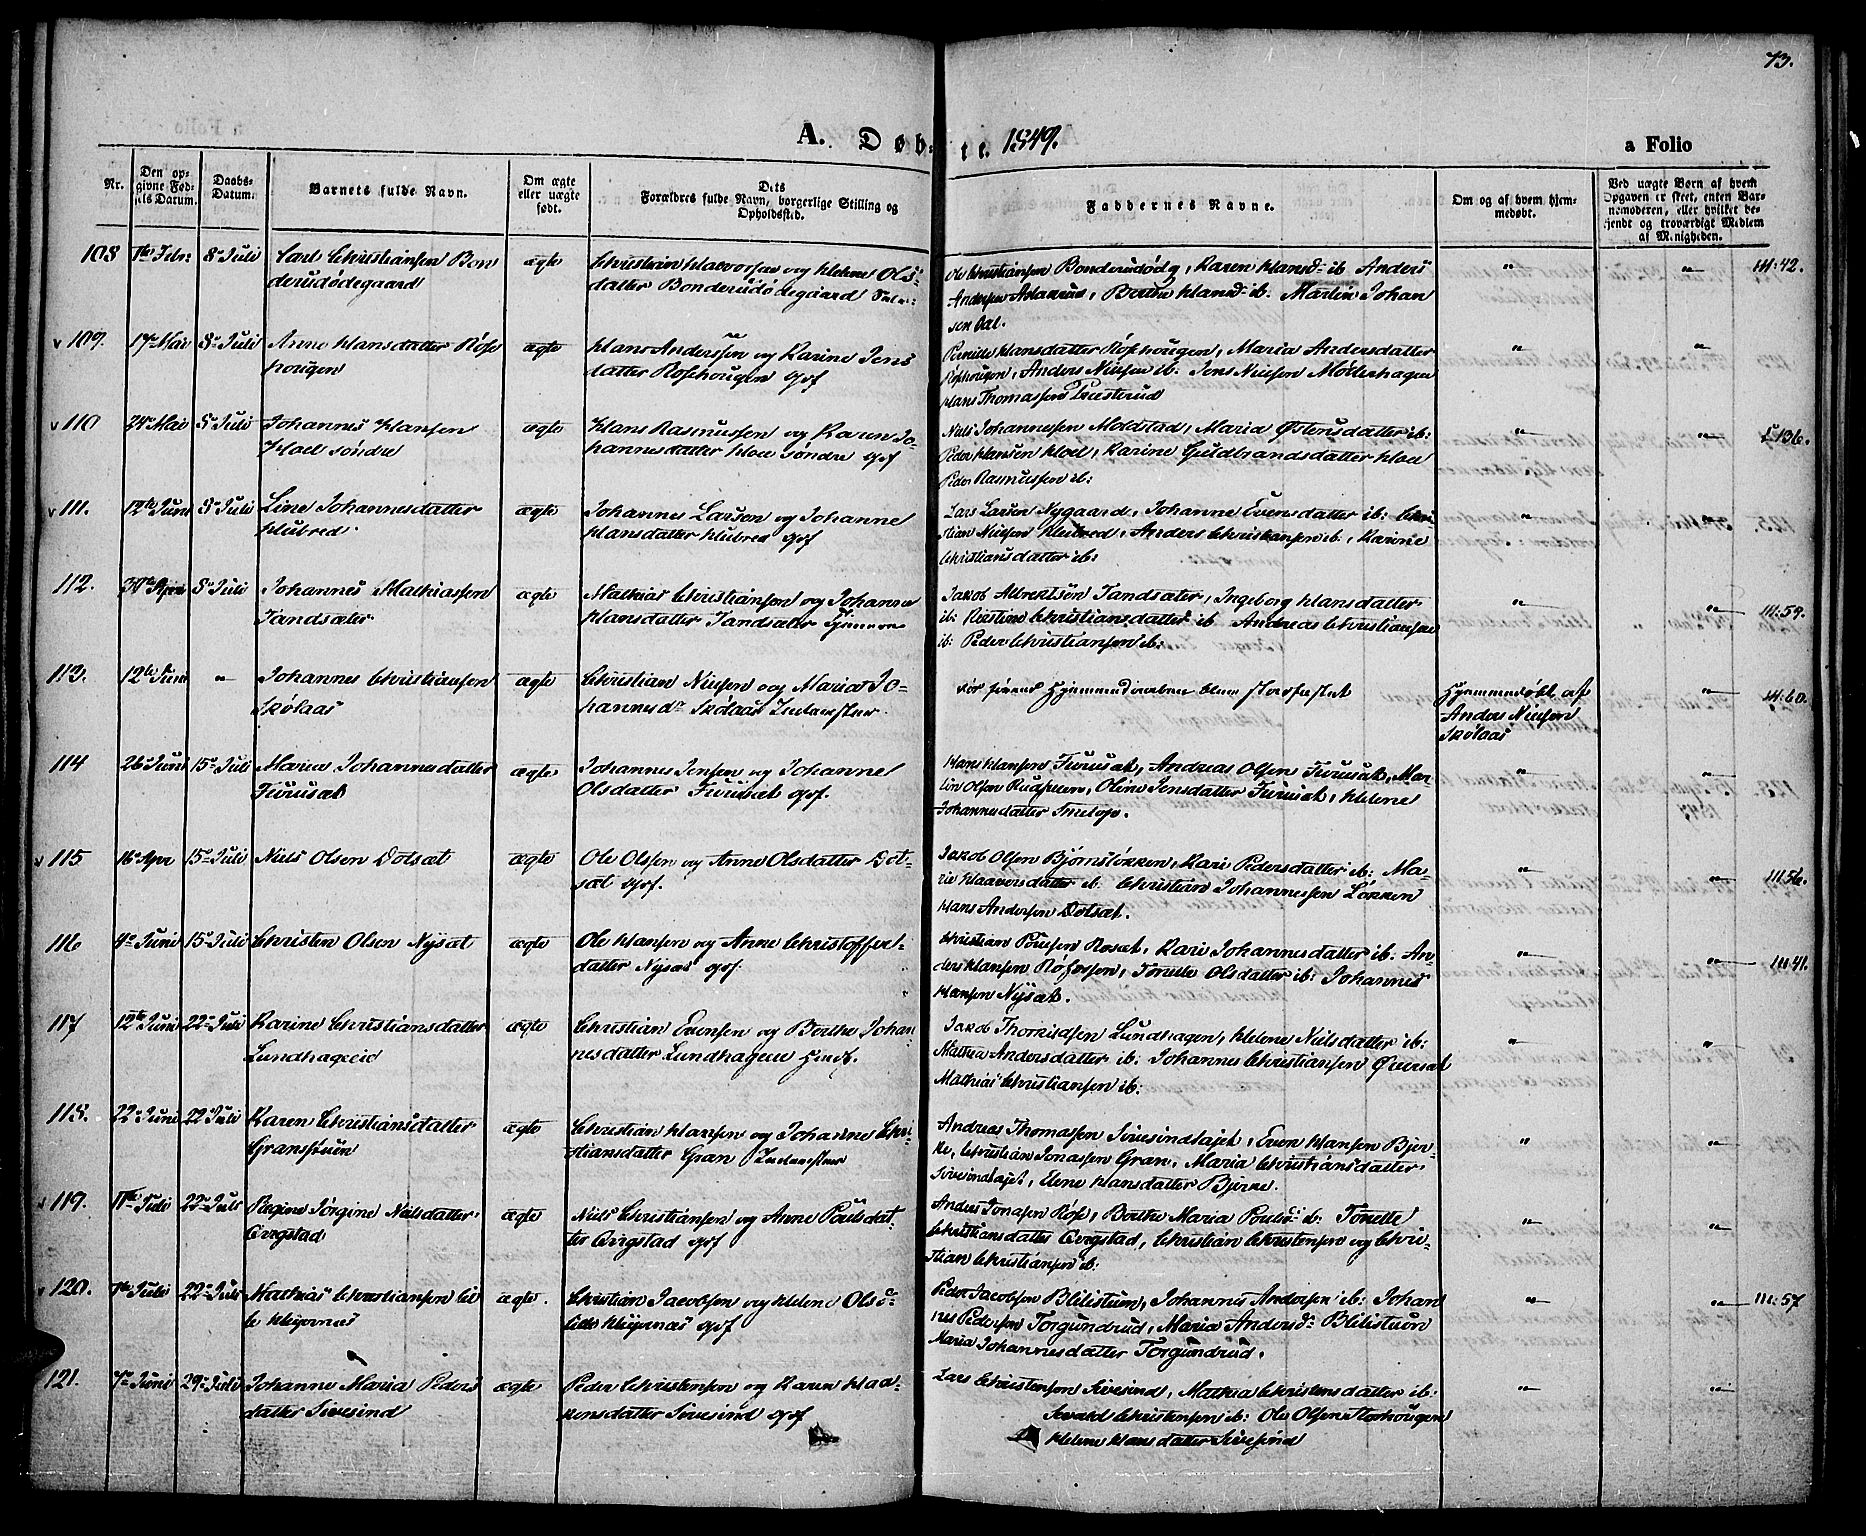 73.
A. Døbte. 1849.
a Folio
Nr.
Den opgivne Fødsels Datum.
Daabs-Datum.
Barnets fulde Navn.
Om ægte eller uægte født.
Dets Forældres fulde Navn, borgerlige Stilling og Opholdssted.
Faddernes Navne.
Om og af hvem hjemmedøbt.
Ved uægte Børn af hvem Opgaven er skeet, enten Barnemoderen, eller hvilket bekjendt og troværdigt Medlem af Menigheden.
108 8de Juli Carl Christiansen Bon
derudødegaard
ægte
Christian Halvorsen og Helene Ols
datter Bonderudødegaard
Ole Christiansen Bonderudødg, Karen Hansd: ib. Anders
Andersen, Berthe Hansd: ib. Martin Johan
sen Dal.
" " 111:42.
109. 17 Mai 8 Juli Anne Hansdatter Røse
hougen
ægte
Hans Anderssen og Karine Jens
datter Røsehougen gpf
Pernille Hansdatter Røsehougen, Maria Andersdatter
Røsehougen, Anders Nielsen ib: Jens Nielsen Møderhagen
Hans Thomassen Præsterud
" "
110 24 Mai 8 Juli Johannes Hansen
Hoel søndre
ægte
Hans Rasmussen og Karen Jo-
hannesdatter Hoel søndre gpf
Niels Johannessen Moldstad, Maria Østensdatter ib:
Peder Hansen Hoel, Karine Guldbrandsdatter Hoel
Peder Rasmussen ib:
" " 136.
111. 12te Juni 8 Juli Line Johannesdatter
Hubred
ægte
Johannes Larsen og Johanne
Hansdatter Hubred gpf
Lars Larsen Nygaard, Johanne Evensdatter ib: Chri
stian Nielsen Hubred, Anders Christiansen ib, Karine
Christiansdatter ib:
" "
112. 30te April 8 Juli Johannes Mathiassen
Tandsæter
ægte
Mathias Christiansen og Johanne
Hansdatter Tandsæter
Jakob Albrektsøn Tandsæter, Ingeborg Hansdatter
ib: Kjestine Christiansdatter ib Andreas Christiansen
ib: Peder Christiansen ib:
" " 111:59.
113. 12te Juni " Johannes Christiansen
Skølaas
ægte
Christian Nielsen og Maria Jo-
hannesdr Skølaas Inderster.
før Hjemmedaaben blev stadfæstet
Hjemmedøbt af
Anders Nielsen
Skølaas
" 111:60.
114 26 Juni 15 Juli Maria Johannesdatter
Furusæt
ægte
Johannes Jensen og Johanne
Olsdatter Furusæt gpf.
Hans Hansen Furusæt, Andreas Olsen Furusæt, Mar-
tin Olsen, Oline Jensdatter Furusæt, Helene
Johannesdatter
" "
115 16 Apr 15 Juli Niels Olsen Dotsæt
ægte
Ole Olssen og Anne Olsdatter Dot-
sæt gpf.
Jakob Olsen Bjørnsløkken, Kari Pedersdatter ib: Ma-
rie Haaversdatter ib. Christian Johannessen Løkken
Hans Andersen Dotsæt.
" " 111:56.
116 4 Juni 15 Juli Christen Olsen Nysæt
ægte
Ole Hansen og Anne Christoffer-
datter Nysæt gpf.
Christian Poulsen Rosæt, Kari Johannesdatter ib: An-
ders Hansen Røfossen, Tonette Olsdatter ib: Johannes
Hansen Nysæt.
" " 111:41.
117 12te Juni 22 Juli Karine Christiansdatter
Lundhageeie
ægte
Christian Evensen og Berthe Johan
nesdatter Lundhageeie Hmf.
Jakob Thorkildsen Lundhagen, Helene Nielsdatter ib:
Mathea Andersdatter ib: Johannes Christiansen Øversæt
Mathias Christiansen ib:
" "
118. 22 Juni 22 Juli Karen Christiansdatter
Granstuen
ægte
Christian Hansen og Johanne Chri-
stiansdatter Gran Inderster
Andreas Thomassen Sivesindlajet, Even Hansen Bjer-
ke, Christian Jonassen Gran, Maria Christiansdatter
Sivesindlajet, Elene Hansdatter Bjerke.
" "
119. 22 Juli Regine Jørgine Nielsdatter
Avgstad
ægte
Niels Christiansen og Anne Poulsdat
ter Avgstad gpf
Anders Jonassen Røse, Berthe Maria Poulsd: ib: Tonette
Christiansdatter Avgstad, Christian Christensen og Chri-
stian Christiansen ib:
" "
120. 22 Juli Mathias Christiansen Lil
le Hejernæs
ægte.
Christian Jacobsen og Helene Ols
Lille Hejernæs gpf
Peder Jacobsen Blilistuen, Johannes Andersen ib: Johan
nes Pedersen Torgundrud, Maria Andersdr Blilistuen
Maria Johannesdatter Torgundrud.
" " 111:57
121. 7 Juni 29 Juli Johanne Maria Peders
datter Sivesind
ægte
Peder Christensen og Karen Haa-
kensdatter Sivesind gpf
Lars Christensen Sivesind, Mathea Christensdatter ib:
Sevald Christensen ib: Ole Olsen Storhougen
Helene Hansdatter Sivesind
" "